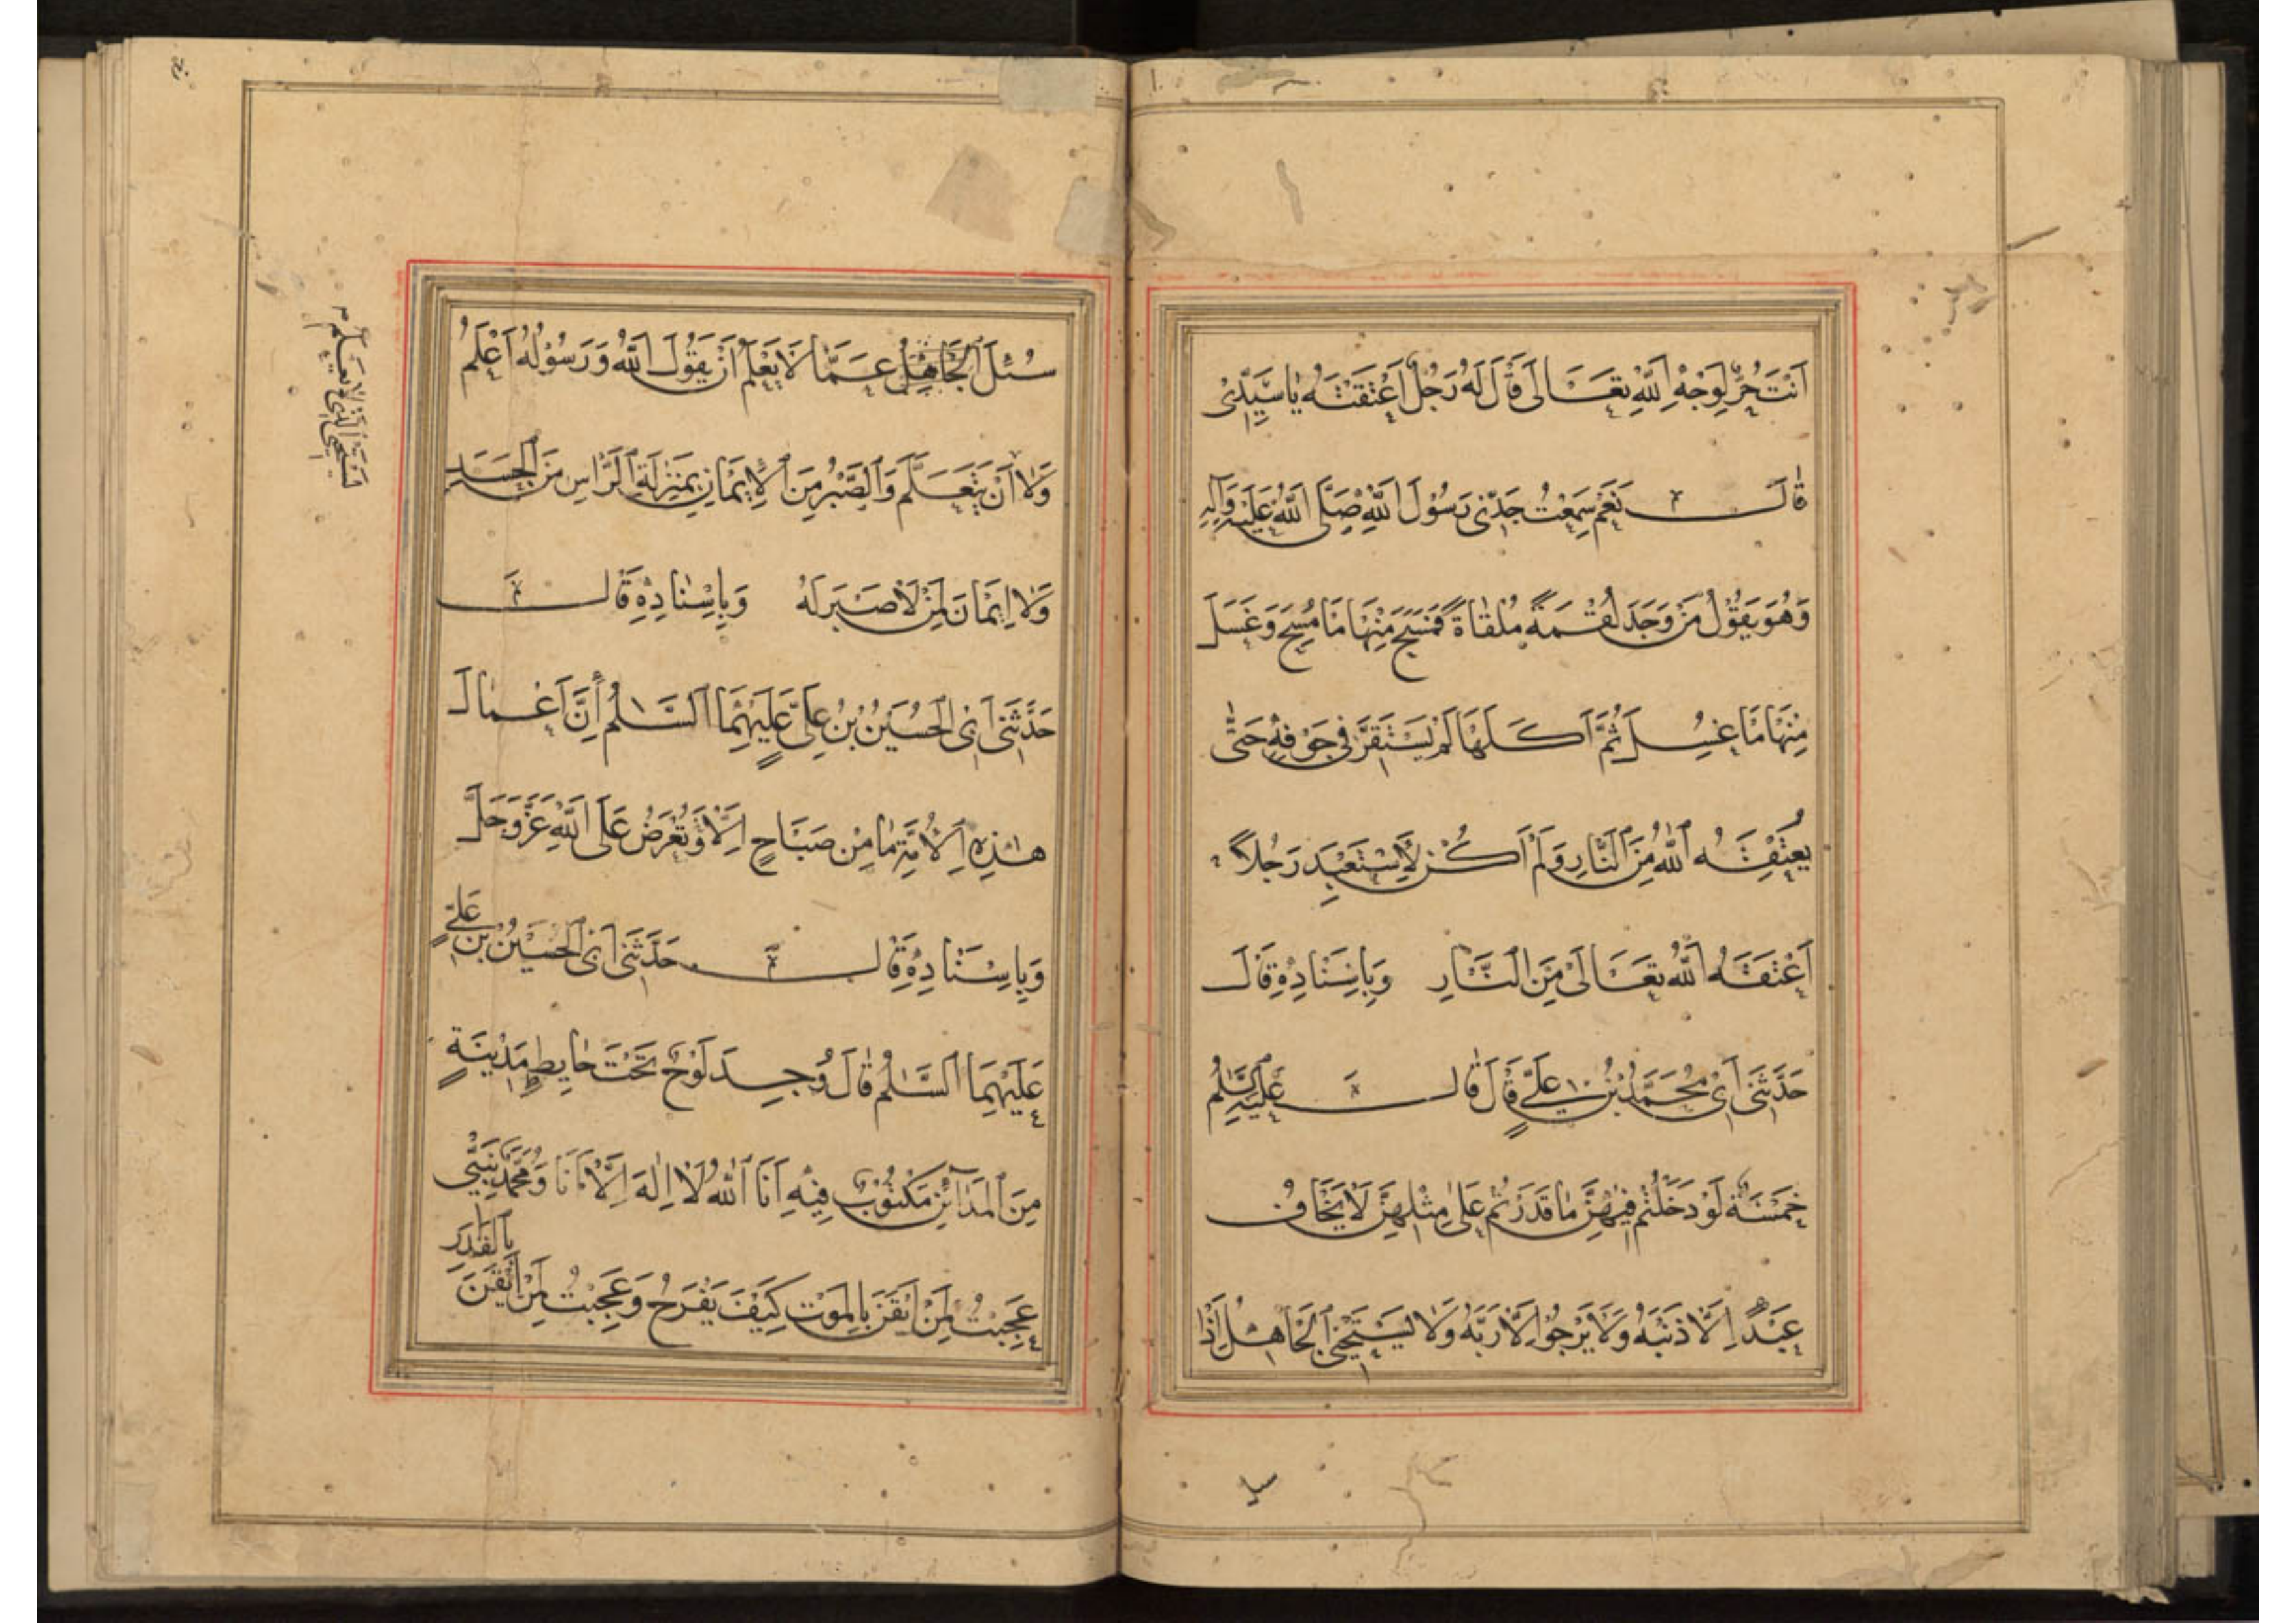 اَنْتَ حُرٌّ لِوَجْهِ اللّٰهِ تَعَالٰى قَالَ لَهُ رَجُلٌ اَعْتَقْتَهُ يَا سَيِّدِىْ
قَالَ نَعَمْ سَمِعْتُ جَدِّىْ رَسُوْلَ اللّٰهِ صَلَّى اللّٰهُ عَلَيْهِ وَاٰلِهِ
وَهُوَ يَقُوْلُ مَنْ وَجَدَ لُقْمَةً مُلْقَاةً فَمَسَحَ مِنْهَا مَا مُسِحَ وَغَسَلَ
مِنْهَا مَا غُسِلَ ثُمَّ اَكَلَهَا لَمْ يَسْتَقِرَّ فِىْ جَوْفِهِ حَتّٰى
يُعْتِقَهُ اللّٰهُ مِنَ النَّارِ وَلَمْ اَكُنْ لِاَسْتَعْبِدَ رَجُلًا
اَعْتَقَهُ اللّٰهُ تَعَالٰى مِنَ النَّارِ وَبِاِسْنَادِهِ قَالَ
حَدَّثَنِىْ اَبِىْ مُحَمَّدُ بْنُ عَلِىٍّ قَالَ قَالَ عَلِىٌّ عَلَيْهِ السَّلٰمُ
خَمْسَةٌ لَوْ دَخَلْتُمْ فِيْهِنَّ مَا قَدَرْتُمْ عَلٰى مِثْلِهِنَّ لَا يَخَافُ
عَبْدٌ اِلَّا ذَنْبَهُ وَلَا يَرْجُوْ اِلَّا رَبَّهُ وَلَا يَسْتَحْيِى الْجَاهِلُ اِذَا
سُئِلَ الْجَاهِلُ عَمَّا لَا يَعْلَمُ اَنْ يَقُوْلَ اللّٰهُ وَرَسُوْلُهُ اَعْلَمُ
وَلَا اَنْ يَتَعَلَّمَ وَالصَّبْرُ مِنَ الْاِيْمَانِ بِمَنْزِلَةِ الرَّأْسِ مِنَ الْجَسَدِ
وَلَا اِيْمَانَ لِمَنْ لَا صَبْرَ لَهُ وَبِاِسْنَادِهِ قَالَ
حَدَّثَنِىْ اَبِى الْحُسَيْنُ بْنُ عَلِىٍّ عَلَيْهِمَا السَّلٰمُ اَنَّ اَعْمَالَ
هٰذِهِ الْاُمَّةِ مَا مِنْ صَبَاحٍ اِلَّا وَتُعْرَضُ عَلَى اللّٰهِ عَزَّ وَجَلَّ
وَبِاِسْنَادِهِ قَالَ حَدَّثَنِىْ اَبِى الْحُسَيْنُ بْنُ عَلِىٍّ
عَلَيْهِمَا السَّلٰمُ قَالَ وُجِدَ لَوْحٌ تَحْتَ حَايِطِ مَدِيْنَةٍ
مِنَ الْمَدَآئِنِ مَكْتُوْبٌ فِيْهِ اَنَا اللّٰهُ لَا اِلٰهَ اِلَّا اَنَا وَمُحَمَّدٌ نَبِيِّىْ
عَجِبْتُ لِمَنْ اَيْقَنَ بِالْمَوْتِ كَيْفَ يَفْرَحُ وَعَجِبْتُ لِمَنْ اَيْقَنَ بِالْقَدَرِ